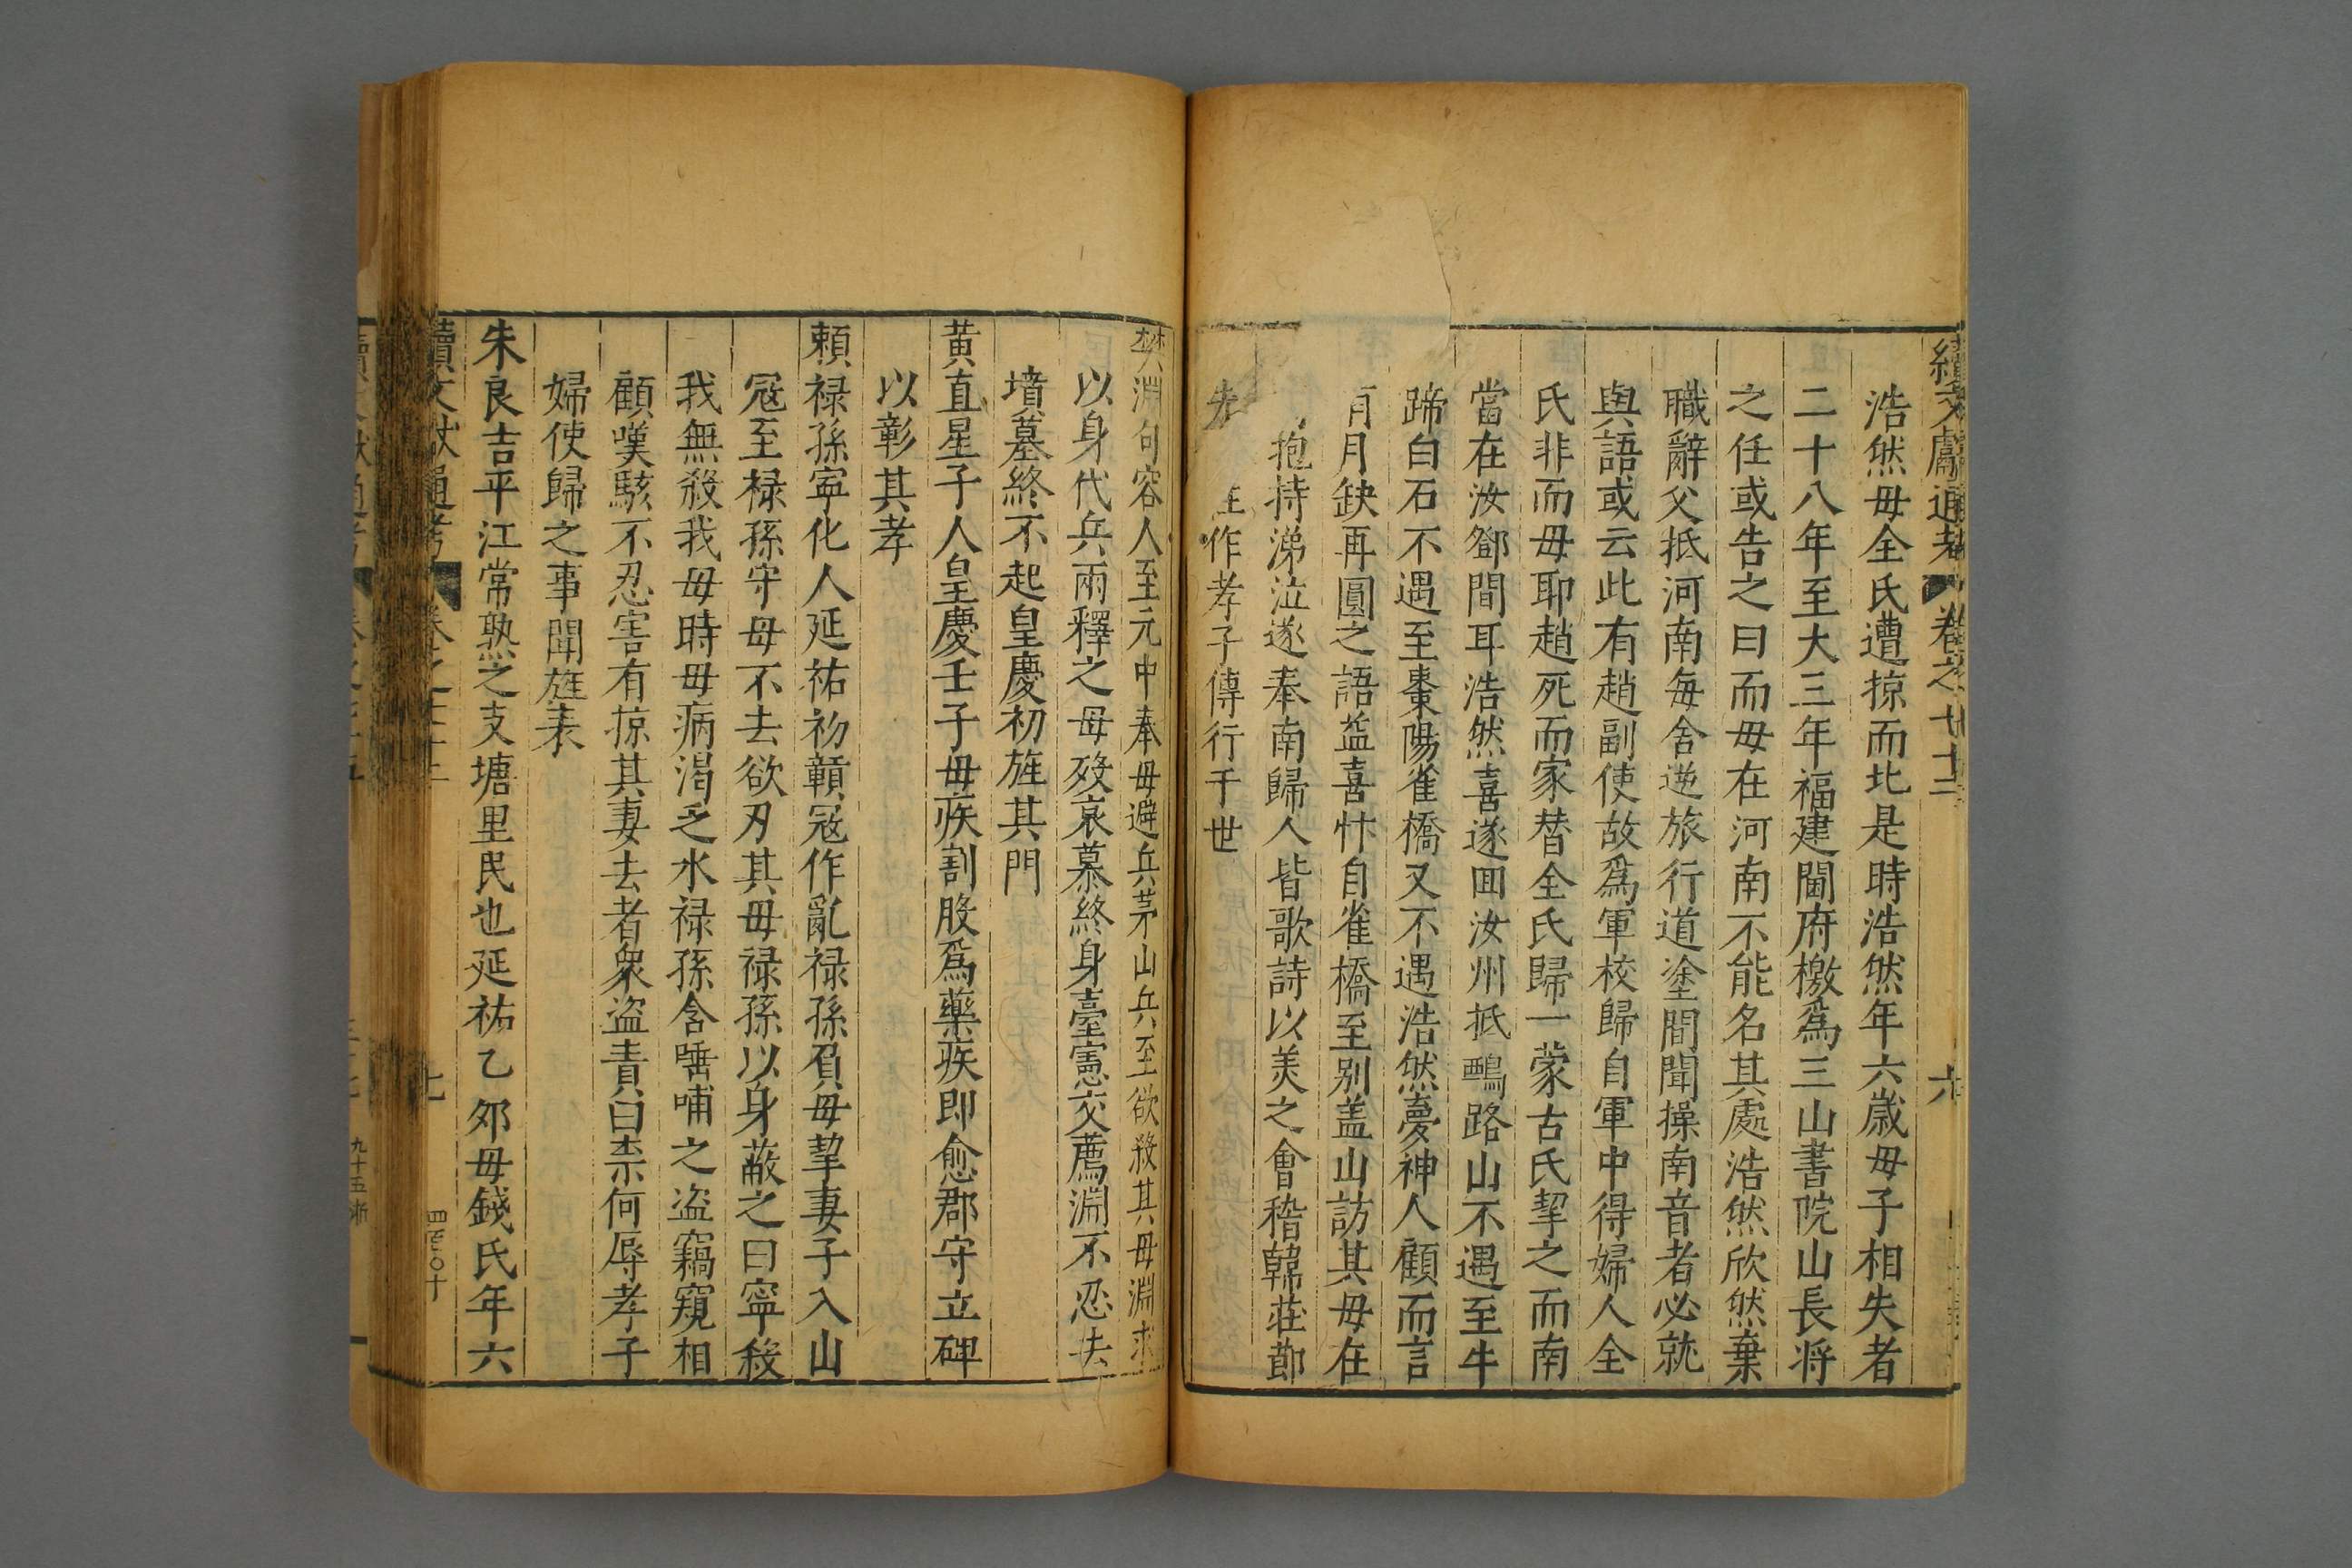 續文獻通考 卷之七十二 六
浩然母全氏遭掠而北是時浩然年六歲母子相失者
二十八年至大三年福建閫府檄爲三山書院山長將
之任或告之曰而母在河南不能名其處浩然欣然棄
職辭父抵河南每舍逆旅行道塗間聞操南音者必就
與語或云此有趙副使故爲軍校歸自軍中得婦人全
氏非而母耶趙死而家替全氏歸一蒙古氏挈之而南
當在汝鄧間耳浩然喜遂回汝州抵鵶路山不遇至牛
蹄白石不遇至棗陽雀橋又不遇浩然夢神人顧而言
月缺再圓之語益喜忭自雀橋至别盖山訪其母在
抱持涕泣遂奉南歸人皆歌詩以美之會稽韓莊節
先 作孝子傳行于世
樊淵句容人至元中奉母避兵茅山兵至欲殺其母淵求
以身代兵兩釋之母歿哀慕終身臺憲交薦淵不忍去
墳墓終不起皇慶初旌其門
黄直星子人皇慶壬子母疾割股爲藥疾即愈郡守立碑
以彰其孝
頼禄孫寜化人延祐初贑冦作亂禄孫負母挈妻子入山
冦至禄孫守母不去欲刃其母禄孫以身蔽之曰寧殺
我無殺我母時母病渴乏水禄孫含唾哺之盗竊窺相
顧嘆駭不忍害有掠其妻去者衆盗責曰柰何辱孝子
婦使歸之事聞旌表
朱良吉平江常熟之支塘里民也延祐乙夘母錢氏年六
續文獻通考 七
四百〇十
九十五